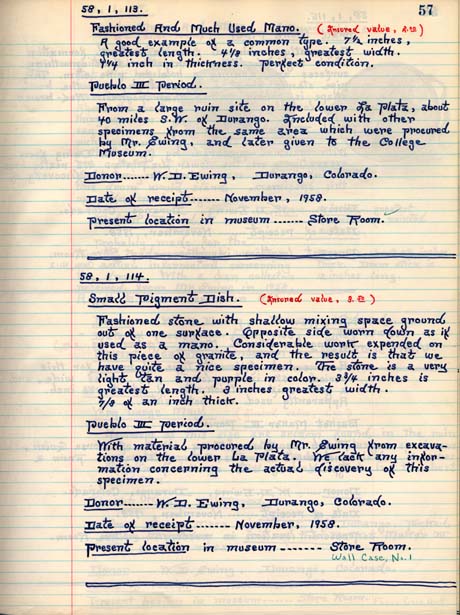 58, 1, 113.
57
Fashioned And Much Used Mano. (Insured value,
A good example of a common type. 7 1/2 inches,
greatest length. 4 1/8 inches, greatest width.
1 1/4 inch in thickness. Perfect condition.
Pueblo III Period.
From a large ruin site on the lower La Plata, about
40 miles S.W. of Durango. Included with other
specimens from the same area which were procured
by Mr. Ewing, and later given to the College
Museum.
Donor------ W. D. Ewing, Durango, Colorado.
Date of receipt------- November, 1958.
Present location in museum ------- Store Room.
58, 1, 114.
Small Pigment Dish. (Insured value,
Fashioned stone with shallow mixing space ground
out of one surface. Opposite side worn down as if
used as a mano. Considerable work expended on
this piece of granite, and the result is that we
have quite a nice specimen. The stone is a very
light tan and purple in color. 3 3/4 inches is
greatest length. 3 inches greatest width.
7/8 of an inch thick.
Pueblo III Period.
With material procured by Mr. Ewing from excava-
tions on the lower La Plata. We lack any infor-
mation concerning the actual discovery of this
specimen.
Donor------ W. D. Ewing, Durango, Colorado.
Date of receipt------- November, 1958.
Present location in museum ------- Store Room.
Wall Case, No. 1